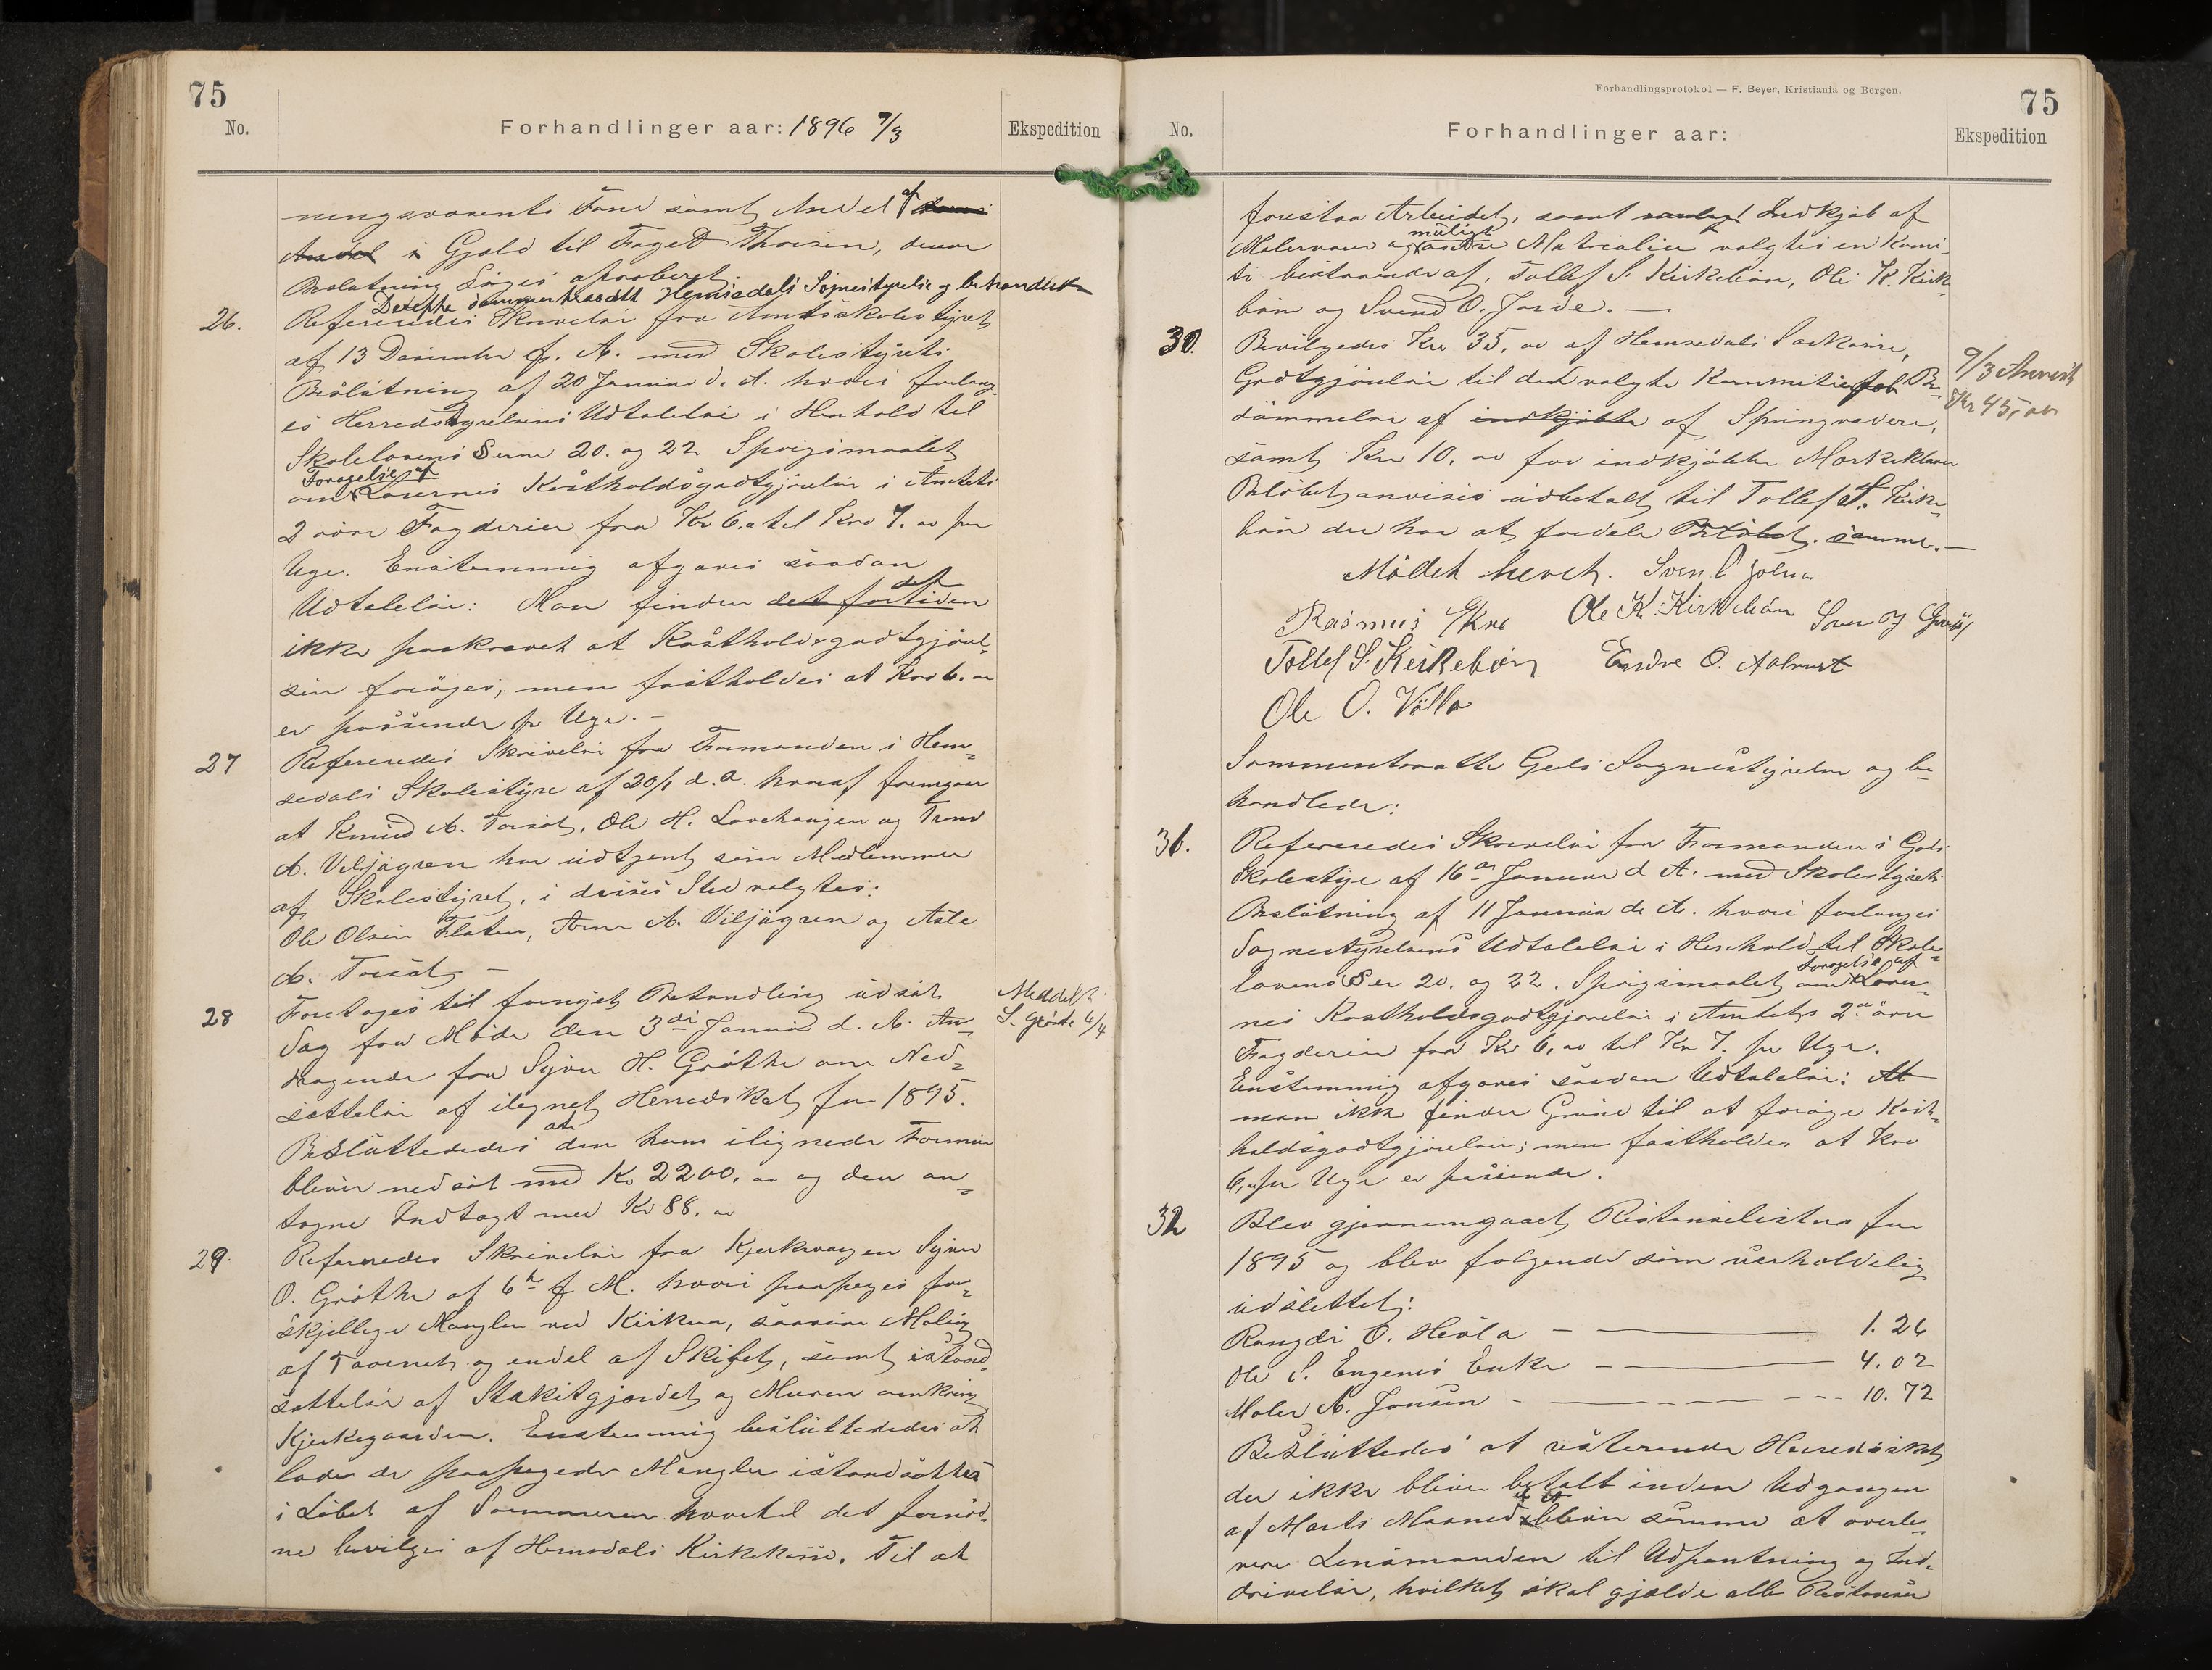 75
No.
Forhandlinger aar: 1896 9/3
Ekspedition
ningsvæsenets Fond samt Andel af
Andel i Gjæld til Foged Thoresen, denne
Beslutning søges approberet.
Derefter sammentraadte Hemsedals Sognestyrelse og behandlede
26.
Refereredes Skrivelse fra Amtsskolestyret
af 13 December f. A. med Skolestyrets
Beslutning af 20 Januar d. A. hvori forlang-
es Herredstyrelsens Udtalelse i Henhold til
Skolelovens §erne 20. og 22. Spørgsmaalet
Forøgelse af
om Lærernes Kostholdsgodtgjørelse i Amtets
2 øvre Fogderier fra Kr 6. til Kro 7. oo per
Uge. Enstemmig afgaves saadan
Udtalelse: Man finder det fortiden
det
ikke paakrævet at Kostholdsgodtgjørel-
sen forøges, men fastholdes at Kro 6. oo
er passende pr Uge. –
27
Refereredes Skrivelse fra Formanden i Hem-
sedals Skolestyre af 30/1 d. a. hvoraf fremgaar
at Knud A. Torset, Ole H. Løvehaugen og Trond
A. Viljugren har udtjent som Medlemmer
af Skolestyret, i disses Sted valgtes:
Ole Olsen Flaten, Arne A. Viljugren og Asle
A. Torset –
28
Foretoges til fornyet Behandling udsat
Sag fra Møde den 3die Januar d. A. An-
dragende fra Syver H. Grøthe om Ned-
sættelse af ilignet Herredskat for 1895.
at
Besluttededes den ham ilignede Formue
bliver nedsat med Kr 2200. oo og den an-
tagne Indtægt med Kr 88. oo
Meddelt
S. Grøthe 6/4
29.
Refereredes Skrivelse fra Kjerkværgen Syver
O. Grøthe af 6te f. M. hvori paapeges for-
skjellige Mangler ved Kirken, saasom Maling
af Taarnet og endel af Skibet, samt istand-
sættelse af Stakitgjærdet og Muren omkring
Kjerkegaarden. Enstemmig besluttededes at
lade de paapegede Mangler istandsættes
i Løbet af Sommeren hvortil det fornød-
ne bevilges af Hemsedals Kirkekasse. Til at
Forhandlingsprotokol — F. Beyer, Kristiania og Bergen.
75
No.
Forhandlinger aar:
Ekspedition
forestaa Arbeidet, samt Indkjøb af
muligt
Malervarer og andre Materialier valgtes en Komi-
te bestaaende af, Tollef S. Kirkebøn, Ole K. Kirke-
bøn og Svend O. Jorde. –
30.
Bevilgedes Kr 35, oo af Hemsedals Sækasse,
Godtgjørelse til den valgte Kommite for Be-
dømmelse af indkjøbte af Springvædere,
samt Kr 10. oo for indkjøbte Mærkeklaver
Beløbet anvises udbetalt til Tollef S. Kirke-
bøn der har at fordele Beløbet. samme. –
9/3 Anvist
Kr 45, oo
Mødet hævet. Sven
Rasmus Ekre Ole K. Kirkebøn
Tollef S. Kirkebøn Endre O. Ahlrust
Ole O. Vølla
Sammentraadte Gols Sognestyrelse og be-
handlede:
31.
Refereredes Skrivelse fra Formanden i Gols
Skolestyre af 16de Januar d. A. med Skolestyrets
Beslutning af 11 Januar d. A. hvori forlanges
Sognestyrelsens Udtalelse i Henhold til Skole-
Forøgelse af
lovens §er 20. og 22. Spørgsmaalet om Lærer-
nes Kostholdsgodtgjørelse i Amtets 2de øvre
Fogderier fra Kr 6, oo til Kr 7. per Uge.
Enstemmig afgaves saadan Udtalelse: At
man ikke finder Grund til at forøge Kost-
holdsgodtgjørelsen; men fastholdes at Kro
6, oo per Uge er passende.
32
Blev gjennemgaaet Restanselisterne for
1895 og blev følgende som uerholdelig
udslettet:
Rangdi O. Hesla – 1. 26
Ole S. Engenes Enke – 4. 02
Maler A. Jonsen – 10. 72
Besluttedes at resterende Herredsskat
der ikke bliver betalt inden Udgangen
af Marts Maaned d. A. bliver samme at overle-
vere Lensmanden til Udpantning og Ind-
drivelse, hvilket skal gjælde alle Restanser